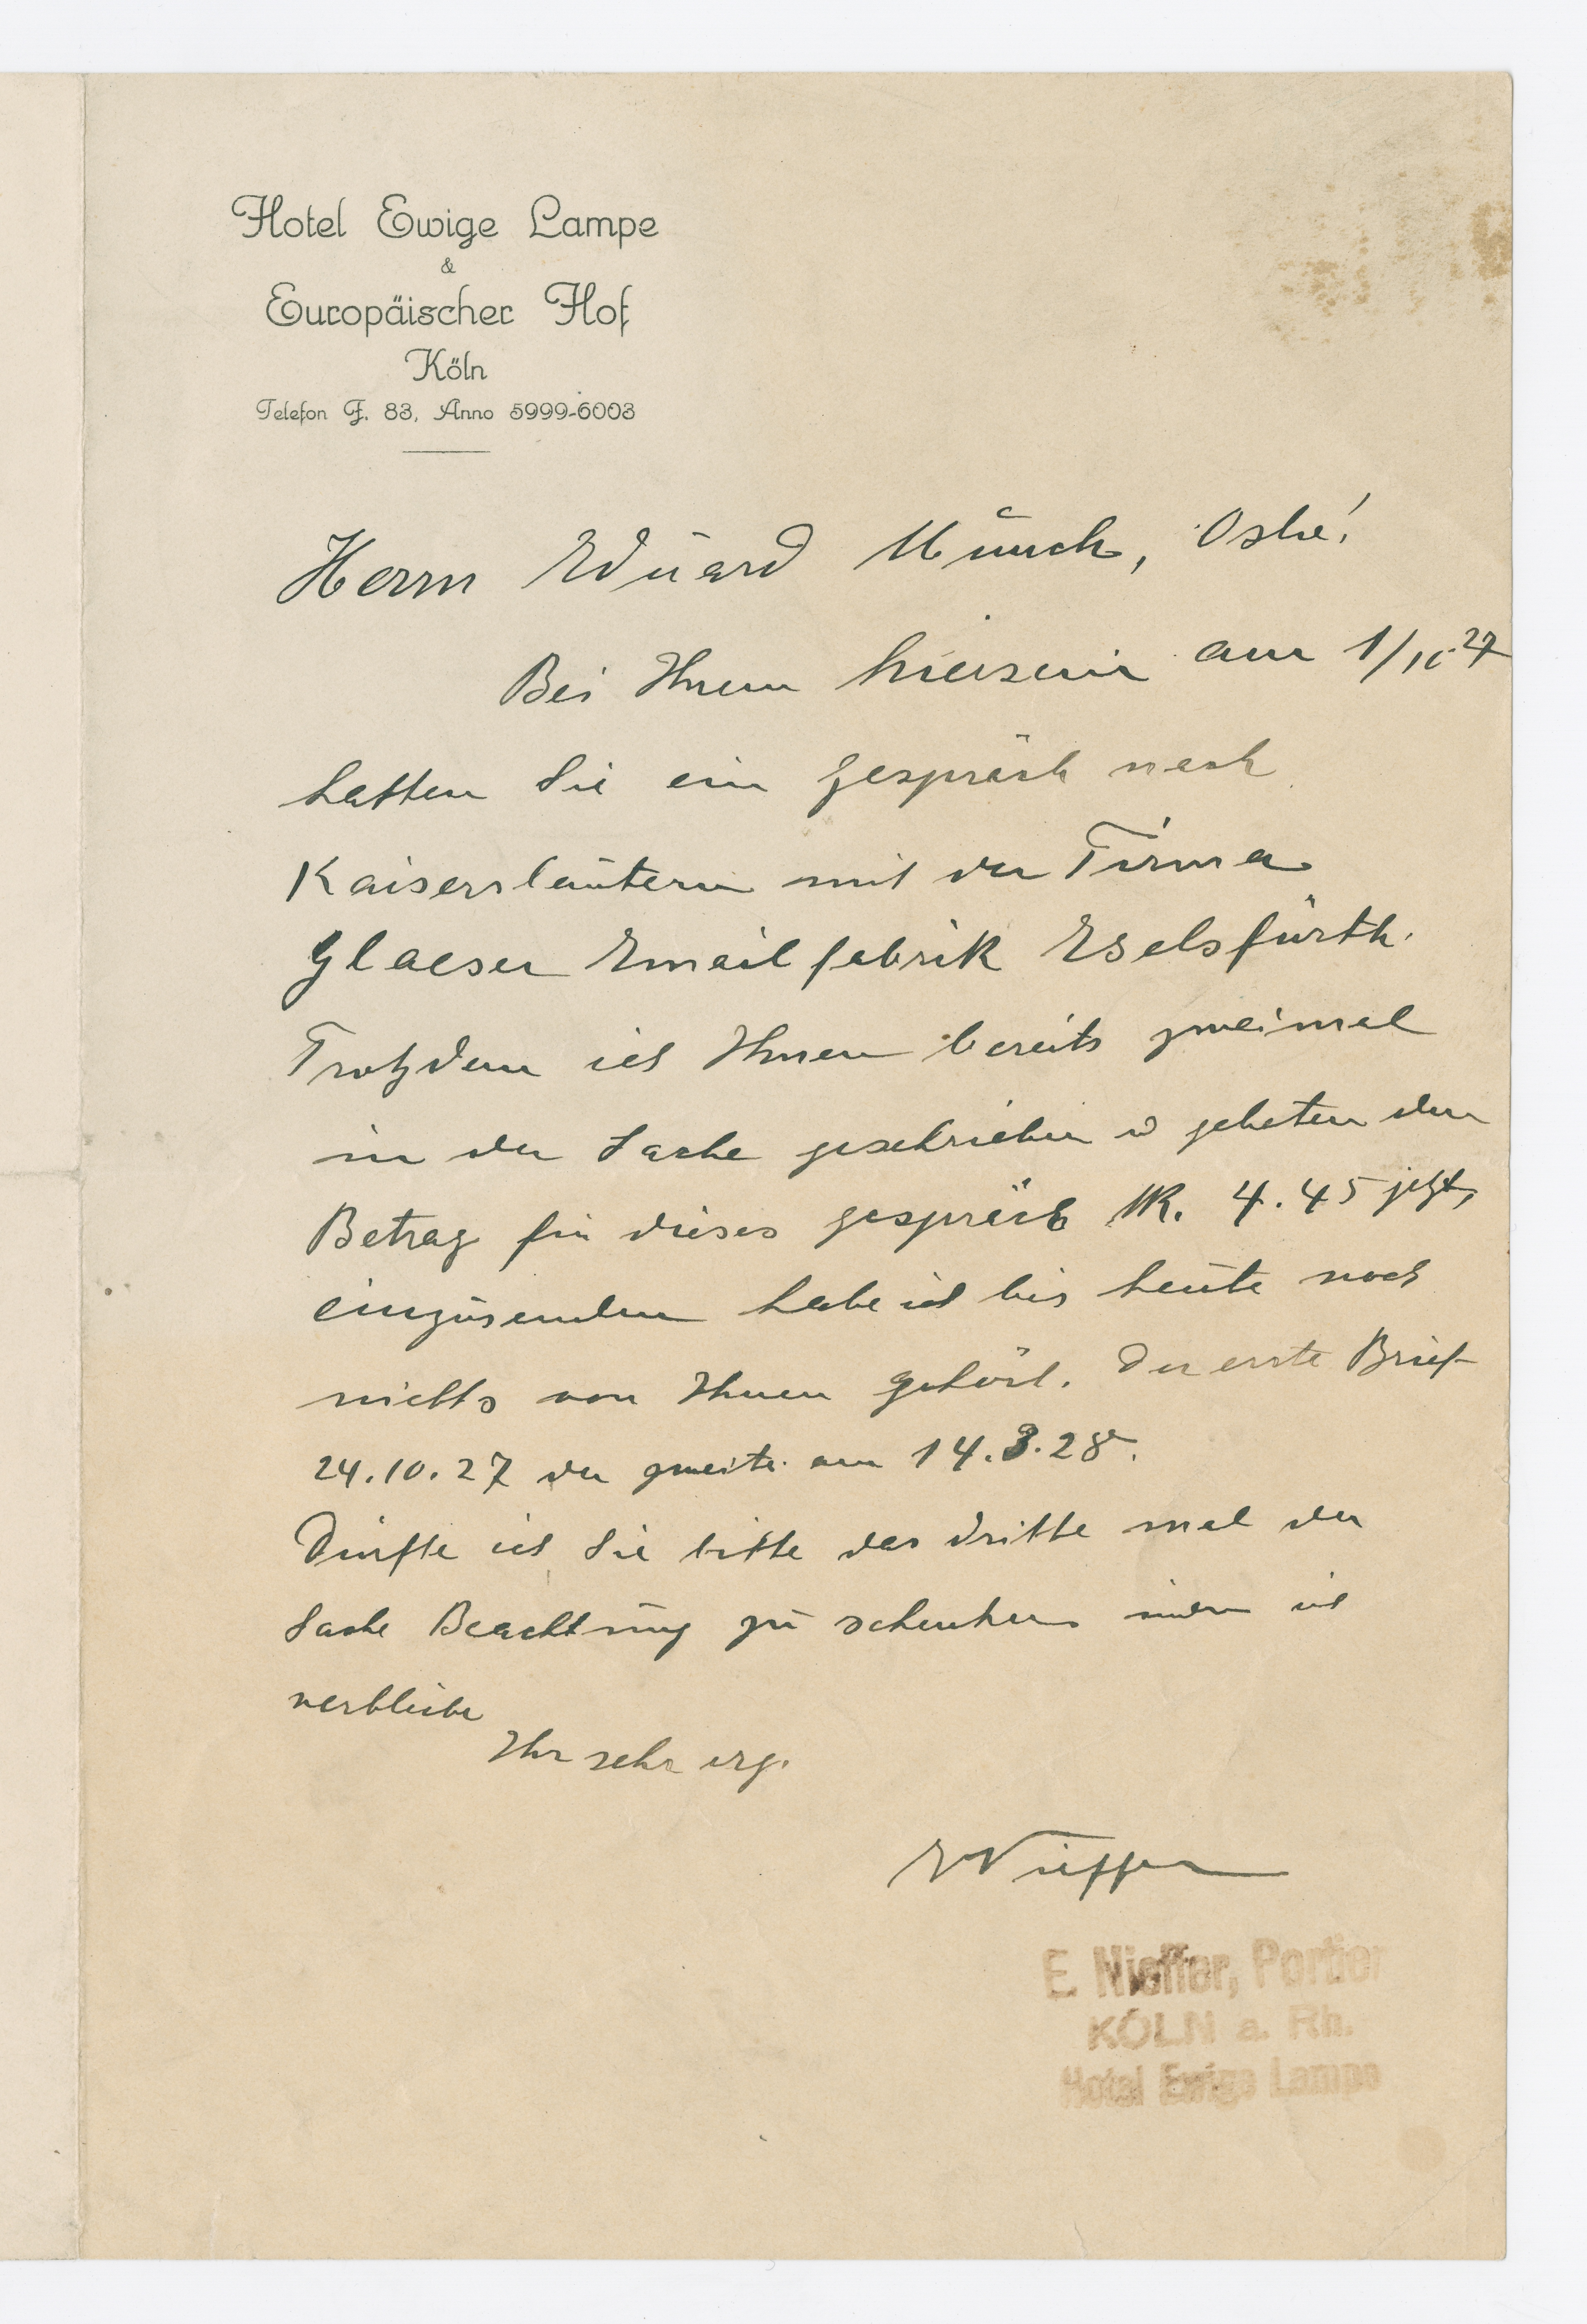 Hotel Ewige Lampe
&
Europäischer Hof
Köln
Telefon F. 83, Anno 5999-6003
Herrn Eduard Münch, Oslo!
Bei Ihrem Hiersein am 1/10.27
hatten Sie ein Gespräch nach
Kaiserslautern mit der Firma
Glaeser Emailfabrik Eselsfürth.
Trotzdem ich Ihnen bereits zweimal
in der Sache geschrieben u gebeten den
Betrag für dieses Gespräch M. 4.45 jetzt,
einzusenden habe ich bis heute noch
nichts von Ihnen gehört. Der erste Brief
24.10.27 der zweite am 14.3.28.
Dürfte ich Sie bitte das dritte mal der
Sache Beachtung zu schenken indem ich
verbleibe
Ihr sehr erg.
E Nieffer
E. Nieffer, Portier
KÖLN a. Rh.
Hotel Ewige Lampe